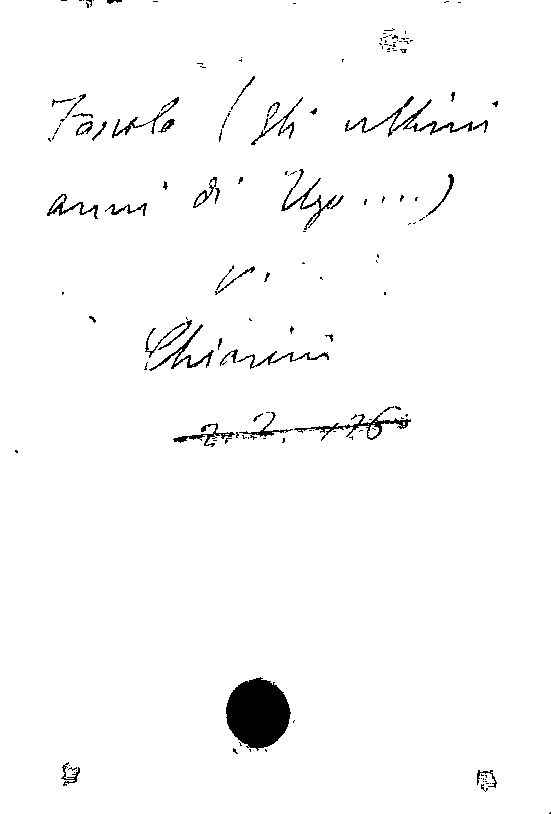 Foscolo (gli ultimi
anni di Ugo ....)
v.
Chiarini
2. 2. 176